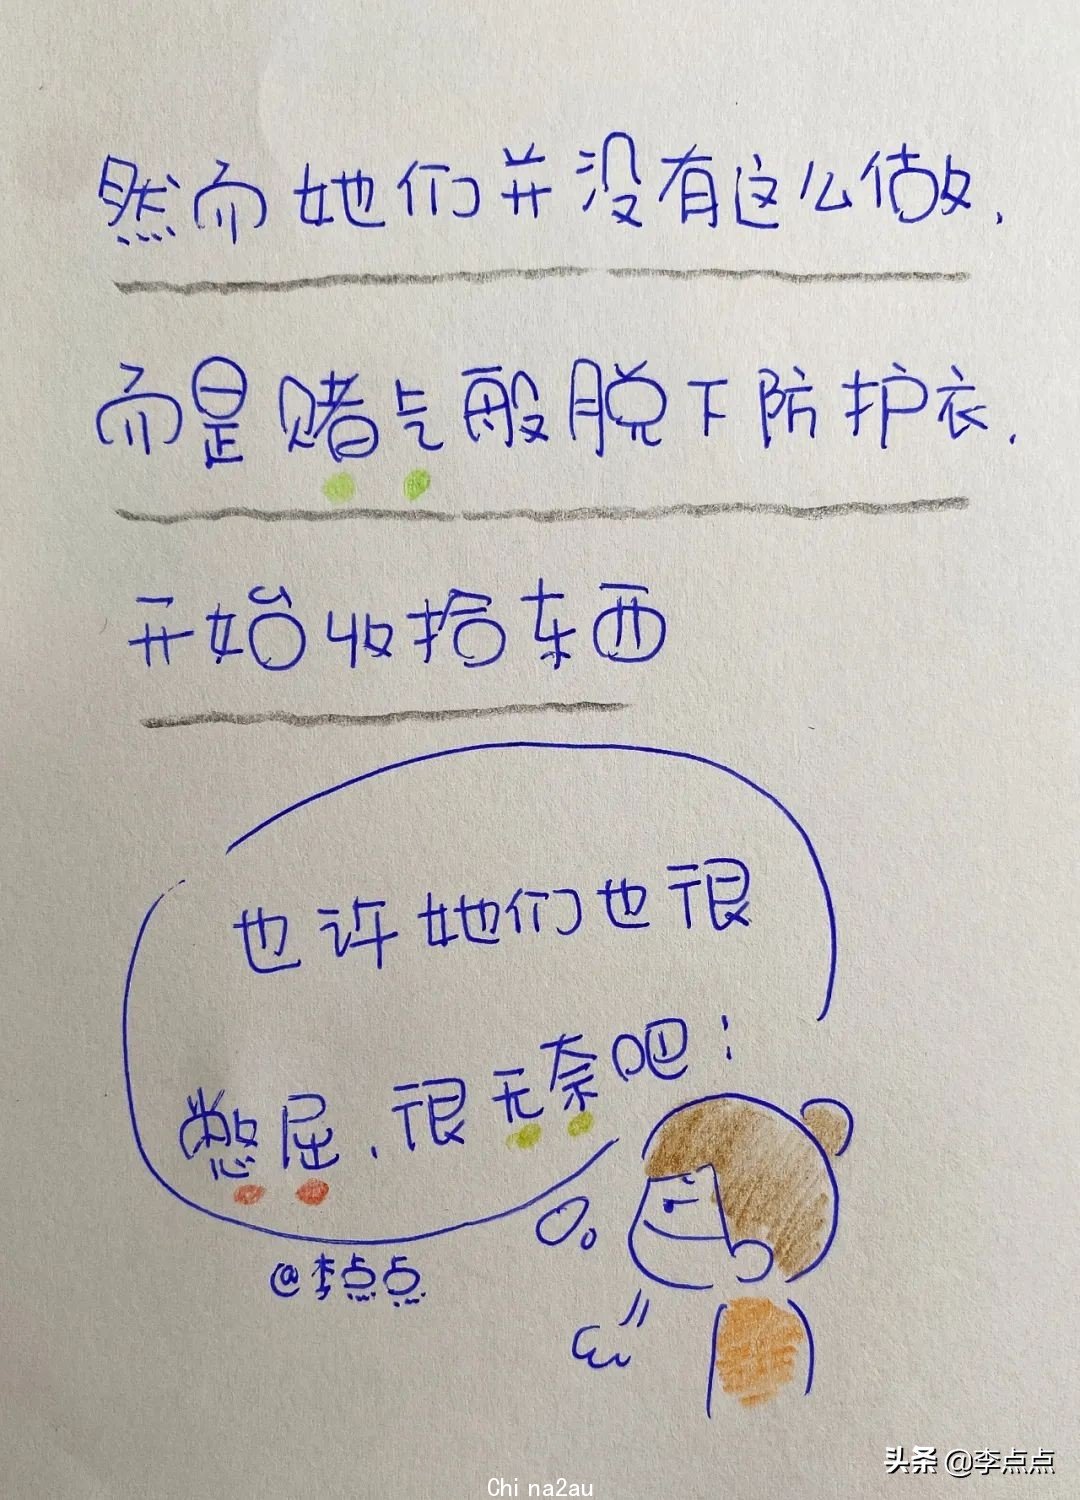 然而她们并没有这么做.
而是赌气般脱下防护衣.
开始收拾东西
也许她们也很
憋屈.很无奈吧!
@李点点
头条 @李点点
Chi na2au